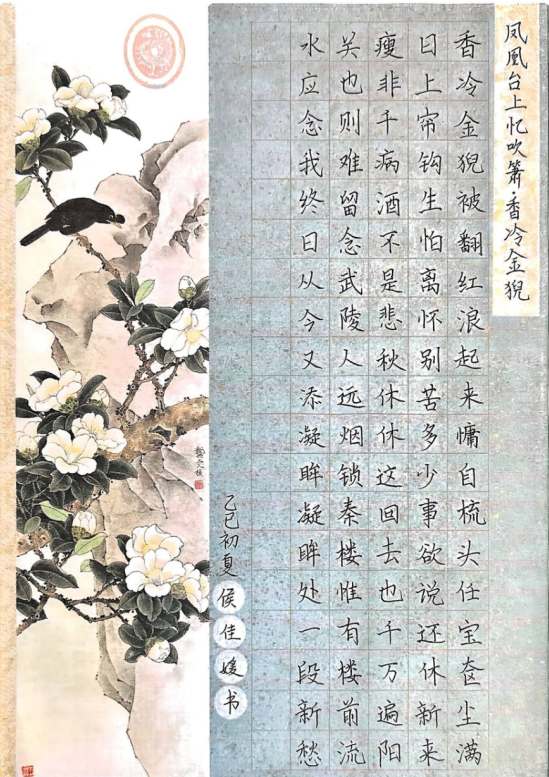 凤凰台上忆吹箫·香冷金猊
香冷金猊被翻红浪起来慵自梳头任宝奁尘满
日上帘钩生怕离怀别苦多少事欲说还休新来
瘦非干病酒不是悲秋休休这回去也千万遍阳
关也则难留念武陵人远烟锁秦楼惟有楼前流
水应念我终日从今又添凝眸凝眸处一段新愁
乙巳初夏侯佳媛书